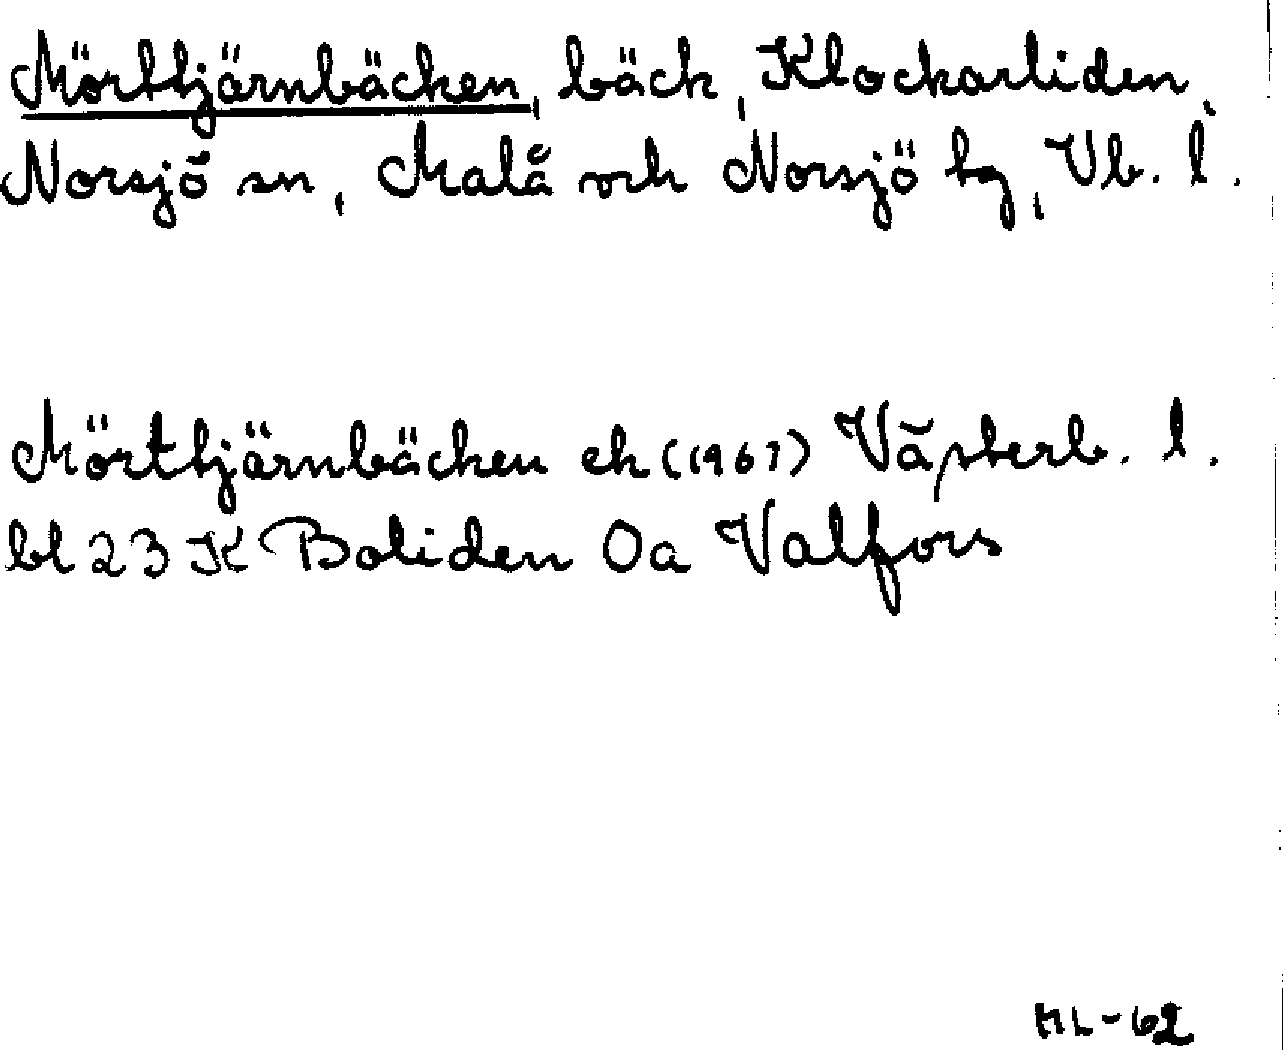 Mörttjärnbäcken, bäck, Klockarliden,
Norsjö sn, Malå och Norsjö tg, Vb. l.
Mörttjärnbäcken ek (1967) Västerb. l.
bl 23 K Boliden 0a Valfors
ML-62